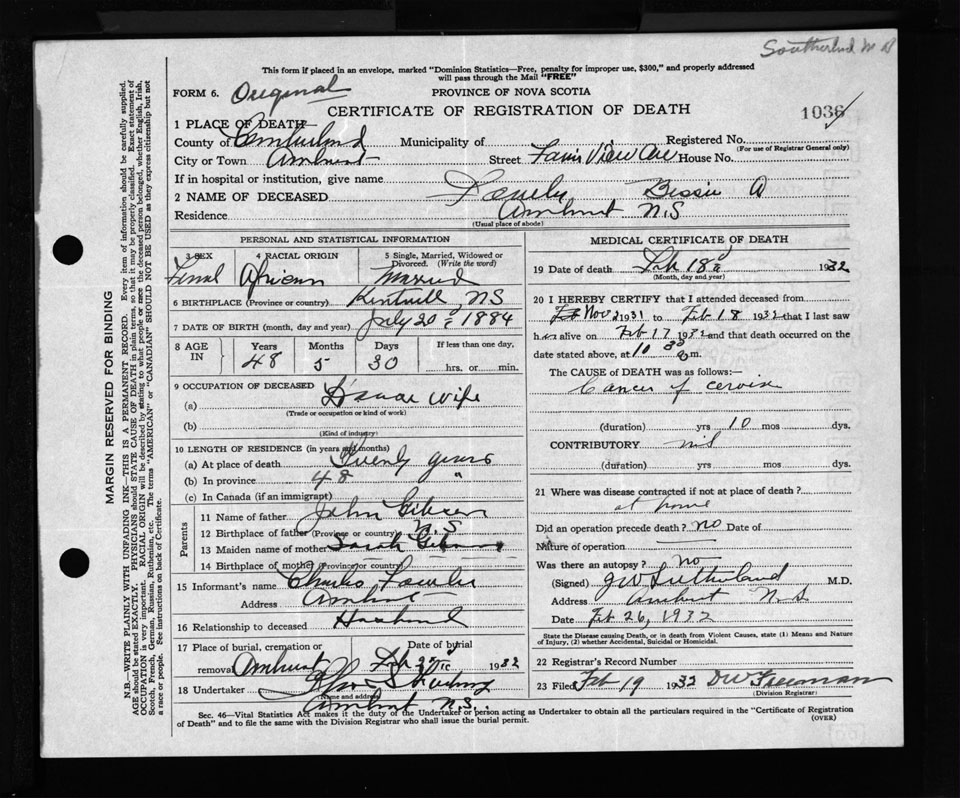 Southerland M D
This form if placed in an envelope, marked "Dominion Statistics—Free, penalty for improper use, $300," and properly addressed
will pass through the Mail "FREE"
FORM 6. Original PROVINCE OF NOVA SCOTIA
CERTIFICATE OF REGISTRATION OF DEATH 1036
1 PLACE OF DEATH—
County of Cumberland Municipality of Registered No.
(For use of Registrar General only)
City or Town Amherst Street Fair View Ave House No.
If in hospital or institution, give name
2 NAME OF DECEASED Bessie A
Residence Amherst N.S
(Usual place of abode)
PERSONAL AND STATISTICAL INFORMATION
3 SEX 4 RACIAL ORIGIN 5 Single, Married, Widowed or Divorced. (Write the word)
Femal African Married
6 BIRTHPLACE (Province or country) Kentville, NS
7 DATE OF BIRTH (month, day and year) July 20, 1884
8 AGE IN Years Months Days If less than one day,
48 5 30 hrs. or min.
9 OCCUPATION OF DECEASED
(a) House Wife
(Trade or occupation or kind of work)
(b)
(Kind of industry)
10 LENGTH OF RESIDENCE (in years and months)
(a) At place of death Twenty years
(b) In province 48 "
(c) In Canada (if an immigrant)
Parents
11 Name of father John Gibson
12 Birthplace of father (Province or country) N.S
13 Maiden name of mother Sarah
14 Birthplace of mother (Province or country)
15 Informant's name Charles
Address Amherst
16 Relationship to deceased Husband
17 Place of burial, cremation or removal Amherst Date of burial Feb 1932
18 Undertaker
(Name and address)
Amherst N.S.
MEDICAL CERTIFICATE OF DEATH
19 Date of death Feb 18 1932
(Month, day and year)
20 I HEREBY CERTIFY that I attended deceased from
Nov 2 1931 to Feb 18 1932 that I last saw
her alive on Feb 17 1932 and that death occurred on the
date stated above, at 10 30 m.
The CAUSE of DEATH was as follows:—
Cancer of cervix
(duration) yrs 10 mos dys.
CONTRIBUTORY nil
(duration) yrs. mos. dys.
21 Where was disease contracted if not at place of death?
at home
Did an operation precede death? no Date of
Nature of operation
Was there an autopsy? no
(Signed) G W Sutherland M.D.
Address Amherst N.S.
Date Feb 26, 1932
State the Disease causing Death, or in death from Violent Causes, state (1) Means and Nature
of Injury, (2) whether Accidental, Suicidal or Homicidal.
22 Registrar's Record Number
23 Filed Feb 19 1932
(Division Registrar)
Sec. 46—Vital Statistics Act makes it the duty of the Undertaker or person acting as Undertaker to obtain all the particulars required in the "Certificate of Registration
of Death" and to file the same with the Division Registrar who shall issue the burial permit. (OVER)
MARGIN RESERVED FOR BINDING
N.B.—WRITE PLAINLY WITH UNFADING INK—THIS IS A PERMANENT RECORD. Every item of information should be carefully supplied.
AGE should be stated EXACTLY. PHYSICIANS should STATE CAUSE OF DEATH in plain terms, so that it may be properly classified. Exact statement of
OCCUPATION is very important. RACIAL ORIGIN will be described by stating to what people or race the deceased person belonged, whether English, Irish,
Scotch, French, German, Russian, Ruthenian, etc. The terms "AMERICAN" or "CANADIAN" SHOULD NOT BE USED as they express citizenship but not
a race or people. See instructions on back of Certificate.